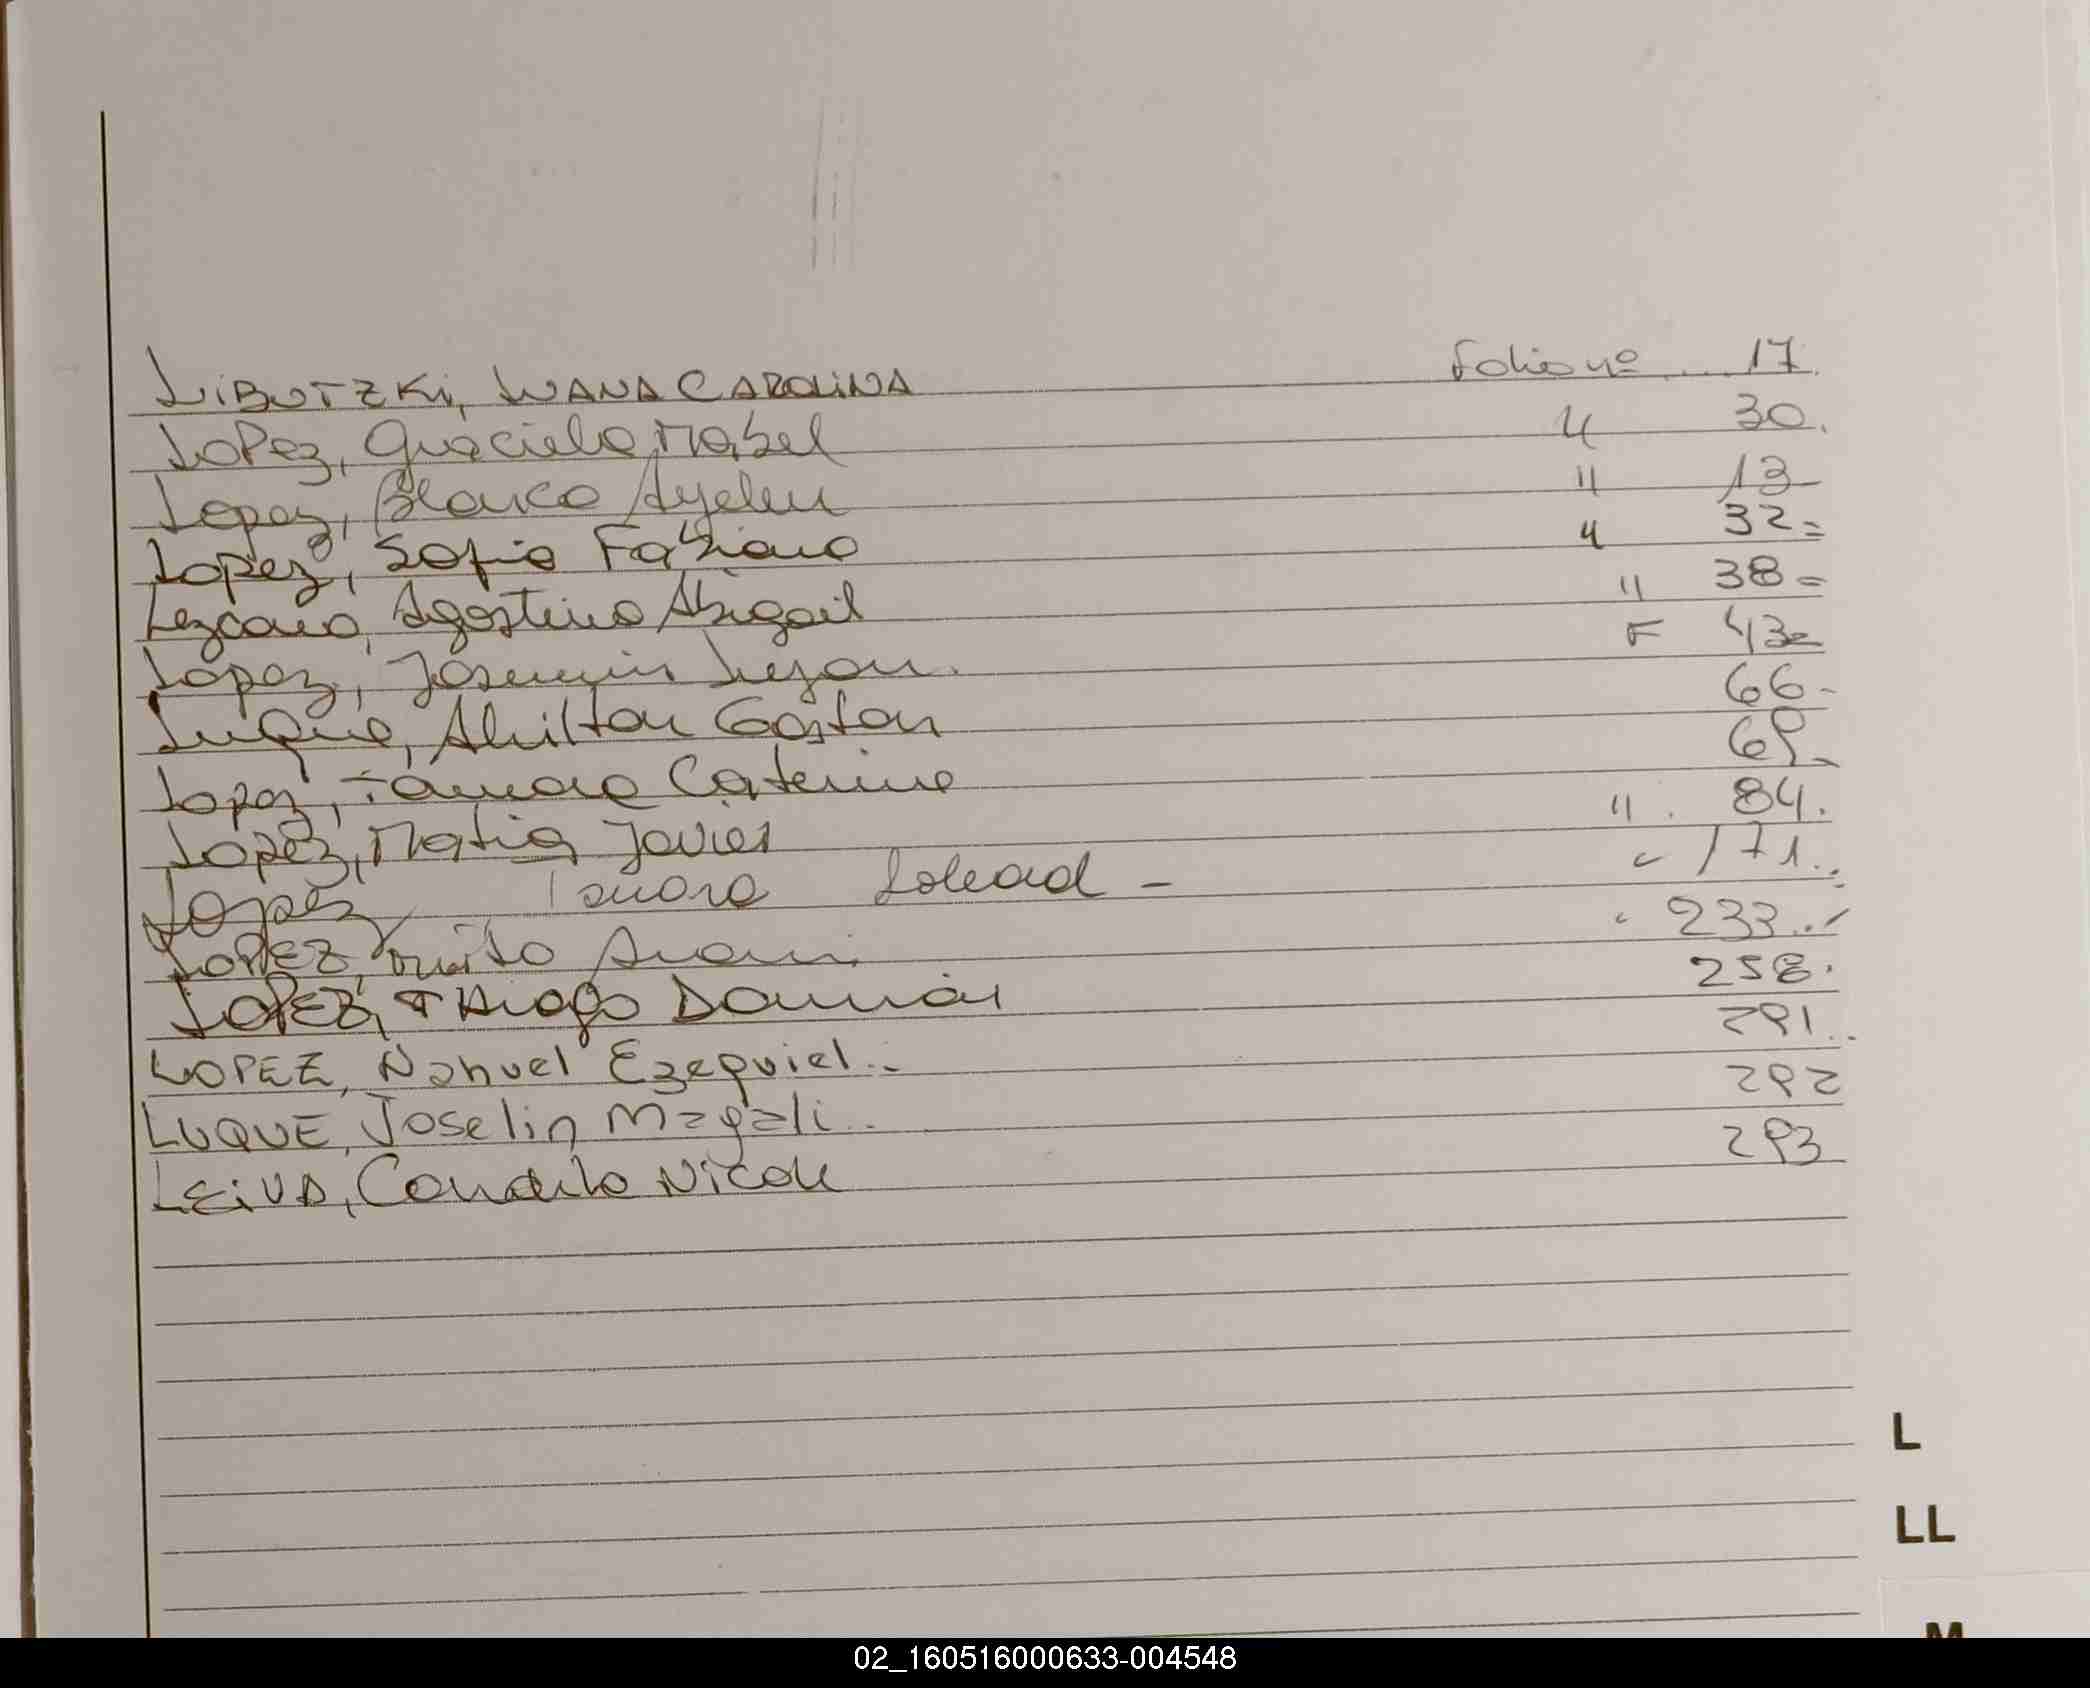 LiBUTZKi, LUANA CAROLINA Folio nº ... 17.
Lopez, Graciela Mabel " 30.
Lopez, Blanca Ayelen " 13-
Lopez, Sofia Fabiana " 32=
Lezcano, Agostina Abigail " 38=
Lopez, Josemin F 43=
Luque, Milton Gaston 66-
Lopez, Tamara Caterina 69-
Lopez, Matias Javier " . 84.
Lopez Tamara Soledad - " 171..
LOPEZ, " 233..
LOPEZ, THiago Damián 258.
LOPEZ, Nahuel Ezequiel.- 291..
LUQUE, Joselin Magali.. 292
LEiVA, Candela Nicole 293
L
LL
M
02_160516000633-004548